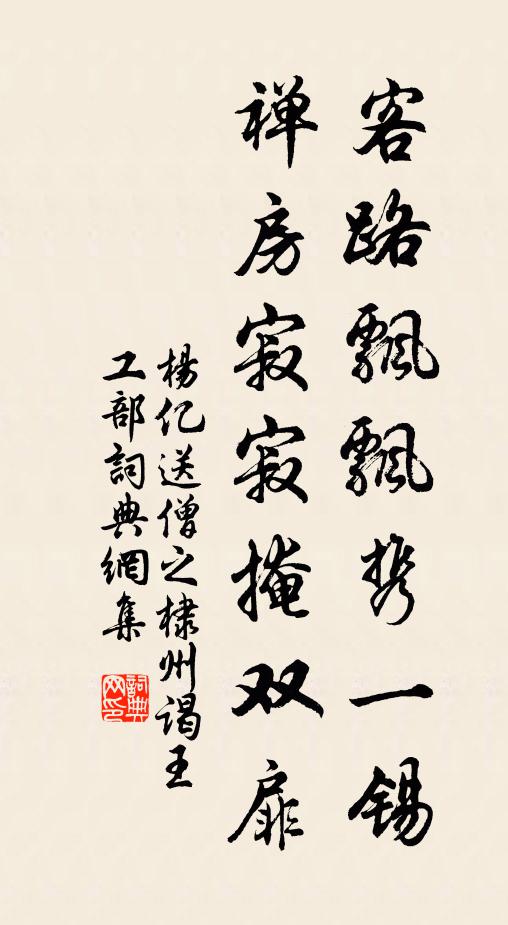 客路飄飄携一锡
禅房寂寂掩双扉
楊亿送僧之棣州谒王
工部詞典網集
詞典网印